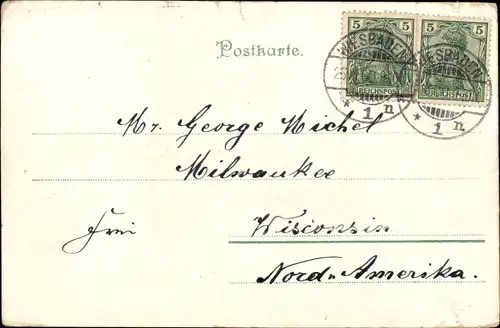 5 5
Postkarte. WIESBADEN WIESBADEN
REICHSPOST REICHSPOST
* 1 n * 1 n
Mr. George Michel
Milwaukee
Frei Wisconsin
Nord-Amerika.